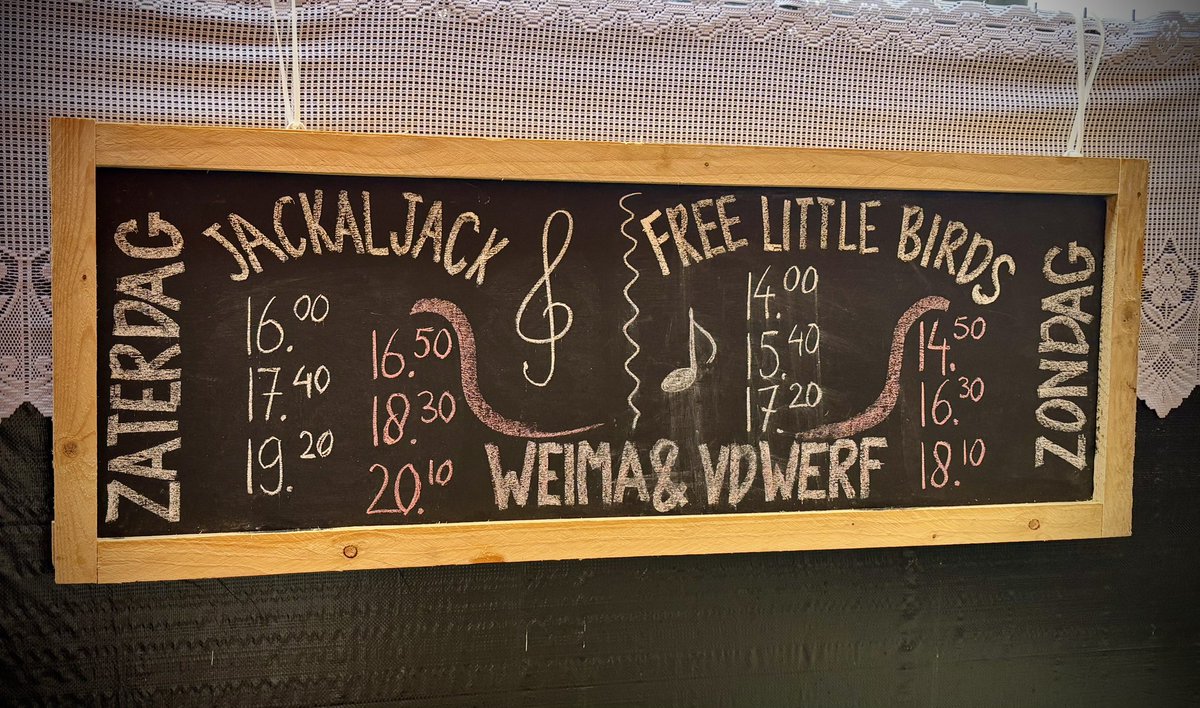 ZATERDAG
JACKALJACK
16.00
17.40
19.20
16.50
18.30
20.10
FREE LITTLE BIRDS
14.00
15.40
17.20
14.50
16.30
18.10
WEIMA & VDWERF
ZONDAG